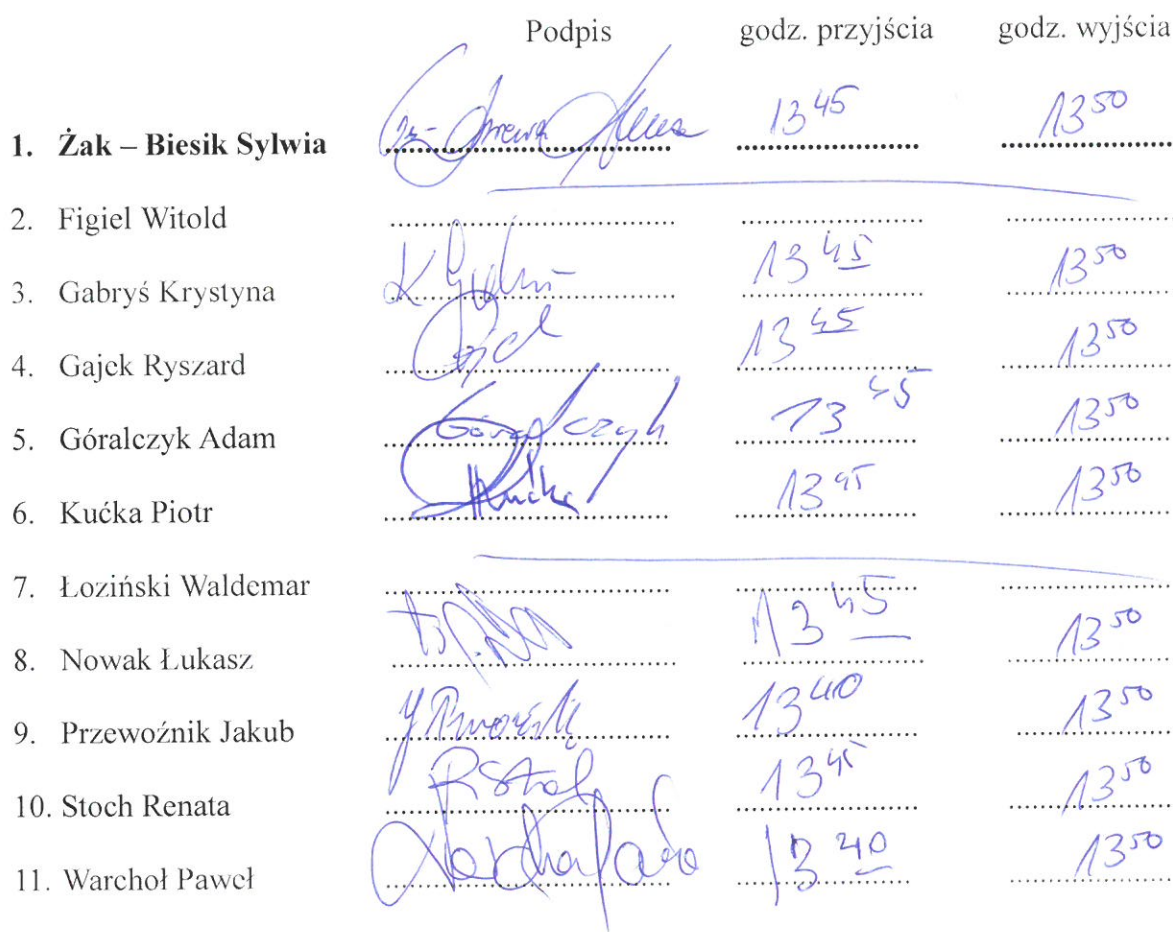 Podpis godz. przyjścia godz. wyjścia
1. Żak – Biesik Sylwia 13 45 13 50
2. Figiel Witold
3. Gabryś Krystyna 13 45 13 50
4. Gajek Ryszard 13 45 13 50
5. Góralczyk Adam Góralczyk 13 45 13 50
6. Kućka Piotr Kućka 13 45 13 50
7. Łoziński Waldemar
8. Nowak Łukasz 13 45 13 50
9. Przewoźnik Jakub 13 40 13 50
10. Stoch Renata R Stoch 13 45 13 50
11. Warchoł Paweł 13 40 13 50